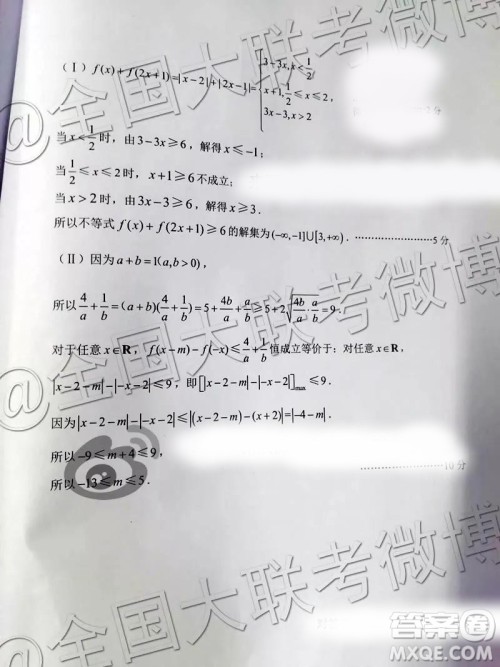 (Ⅰ) f(x)+f(2x+1)=|x-2|+|2x-1|={3-3x, x<1/2; x+1, 1/2≤x≤2; 3x-3, x>2 .
当 x<1/2 时，由 3-3x≥6，解得 x≤-1；
当 1/2≤x≤2 时，x+1≥6 不成立；
当 x>2 时，由 3x-3≥6，解得 x≥3．
所以不等式 f(x)+f(2x+1)≥6 的解集为 (-∞,-1]∪[3,+∞)．…………………5 分
(Ⅱ) 因为 a+b=1(a,b>0)，
所以 4/a+1/b=(a+b)(4/a+1/b)=5+4b/a+a/b≥5+2√(4b/a·a/b)=9．
对于任意 x∈R，f(x-m)-f(-x)≤4/a+1/b 恒成立等价于：对任意 x∈R，
|x-2-m|-|-x-2|≤9，即 [|x-2-m|-|-x-2|]max≤9．
因为 |x-2-m|-|-x-2|≤|(x-2-m)-(x+2)|=|-4-m|．
所以 -9≤m+4≤9，
…………………10 分
所以 -13≤m≤5．
@全国大联考微博
@全国大联考微博
@全国大联考微博
答案圈
MXQE.COM